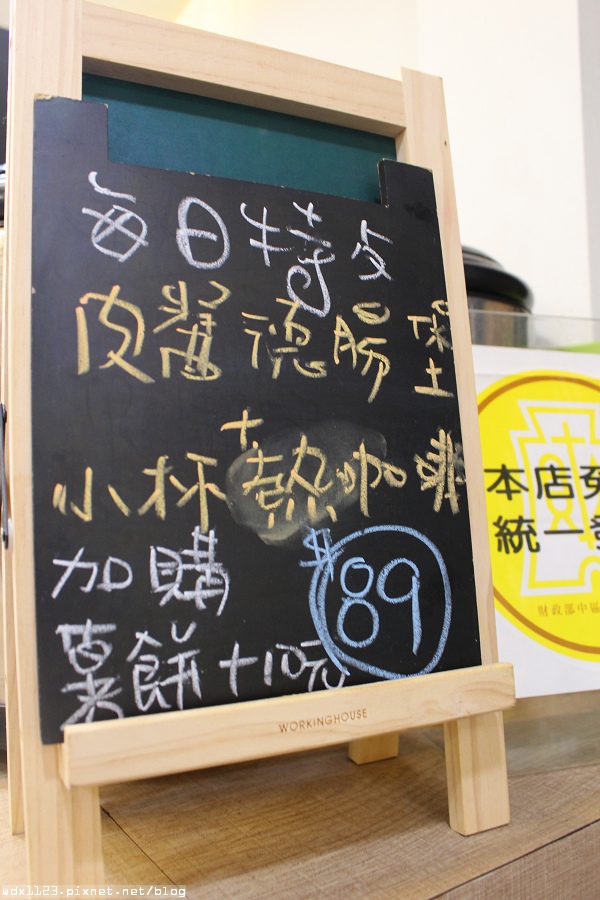 每日特
皮醬德腸堡
+
小杯熱咖啡
加購
$89
薯餅+10元
WORKINGHOUSE
本店免
統一發
財政部中區
wdx1123.pixnet.net/blog